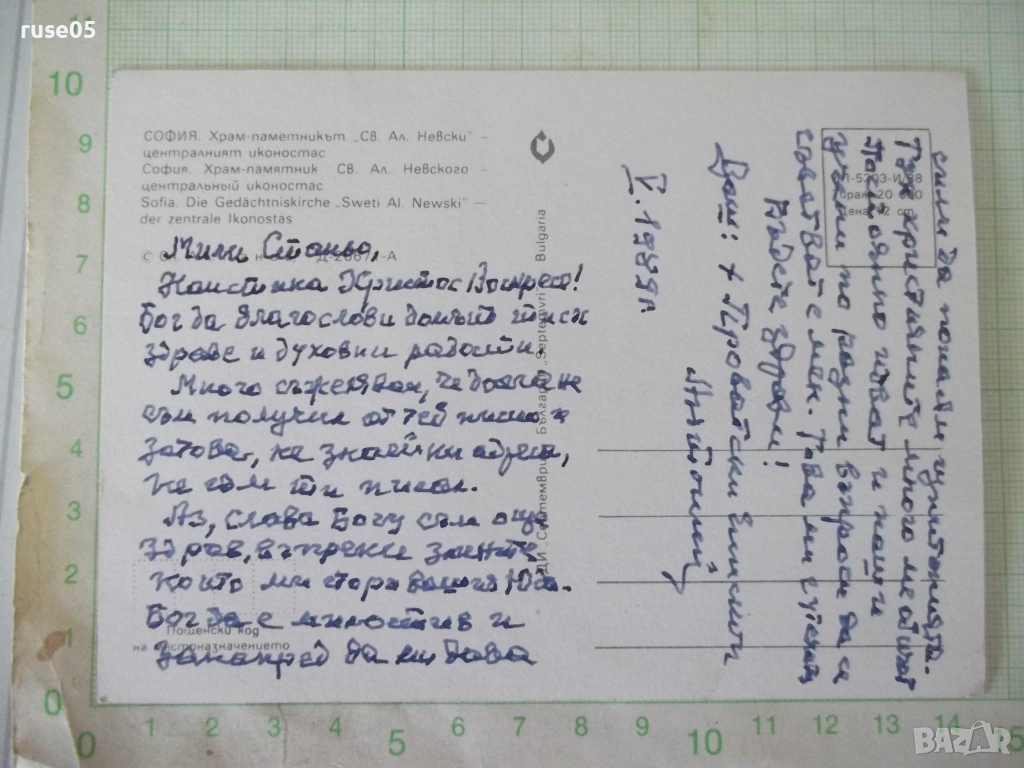 ruse05
СОФИЯ. Храм-паметникът „Св. Ал. Невски" –
централният иконостас
София. Храм-памятник Св. Ал. Невского –
центральный иконостас
Sofia. Die Gedächtniskirche „Sweti Al. Newski" –
der zentrale Ikonostas
Мили
Наистина Христос Воскресе!
Бог да благослови
здраве и духовни радости.
Много съжелявам, че досега не
съм получил от теб писмо и
затова, не знаейки адреса,
не съм ти писал.
Аз, слава Богу съм още
здрав, въпреки
които ми
Бог да е милостив и
занапред да ми дава
сили да понасям
Тук християните много ме обичат
Постоянно идват и
по разни въпроси да се
съветват с мен. Това ми е
Бъдете здрави!
Ваш: + Проватски епископ
Антоний
V. 1989г.
ДИ „Септември", България „Septemvri" Bulgaria
Пощенски код
на местоназначението
10
9
8
7
6
5
4
3
2
1
0
0
1
2
3
4
5
6
7
8
9
10
11
12
13
14
15
BAZAR